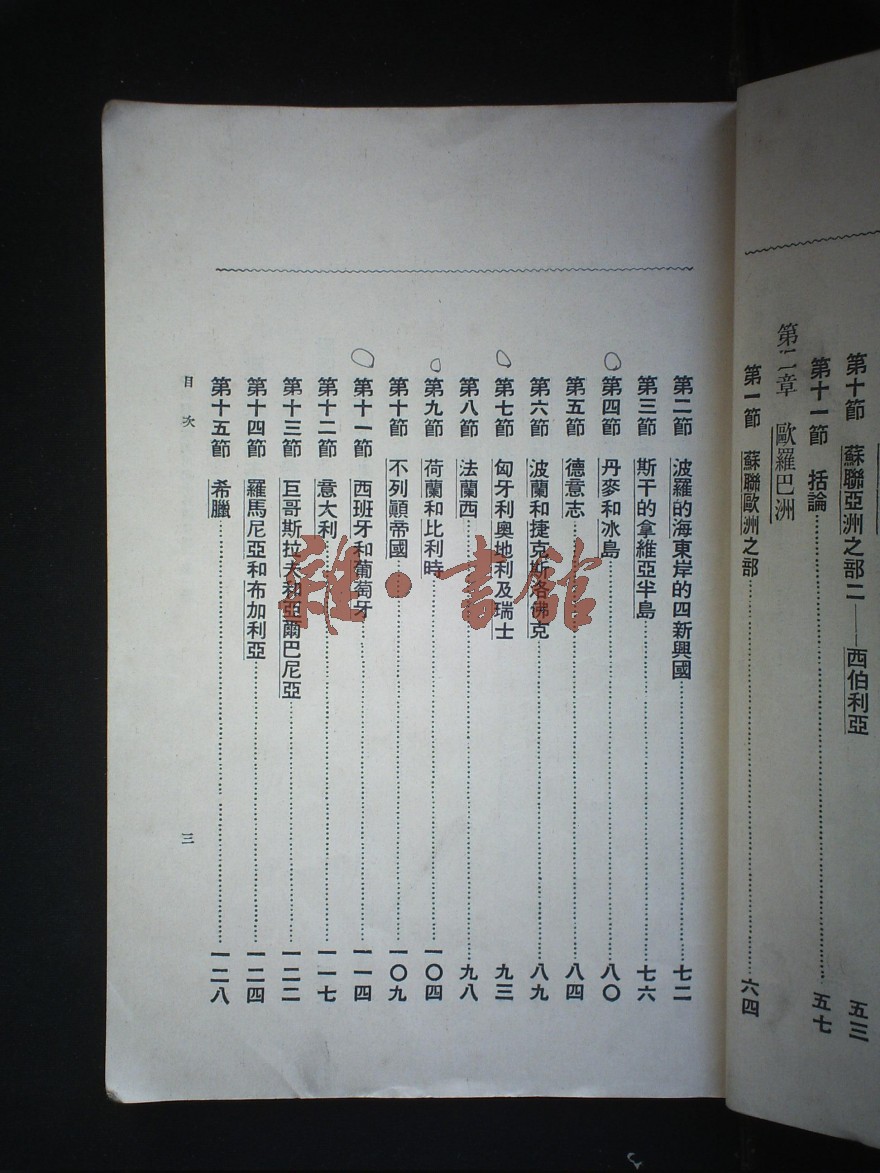 第十節 蘇聯亞洲之部二——西伯利亞 五三
第十一節 括論 五七
第二章 歐羅巴洲
第一節 蘇聯歐洲之部 六四
第二節 波羅的海東岸的四新興國 七二
第三節 斯干的拿維亞半島 七六
第四節 丹麥和冰島 八〇
第五節 德意志 八四
第六節 波蘭和捷克斯洛佛克 八九
第七節 匈牙利奧地利及瑞士 九三
第八節 法蘭西 九八
第九節 荷蘭和比利時 一〇四
第十節 不列顚帝國 一〇九
第十一節 西班牙和葡萄牙 一一四
第十二節 意大利 一一七
第十三節 巨哥斯拉夫和亞爾巴尼亞 一二二
第十四節 羅馬尼亞和布加利亞 一二四
第十五節 希臘 一二八
目次
三
雜·書館